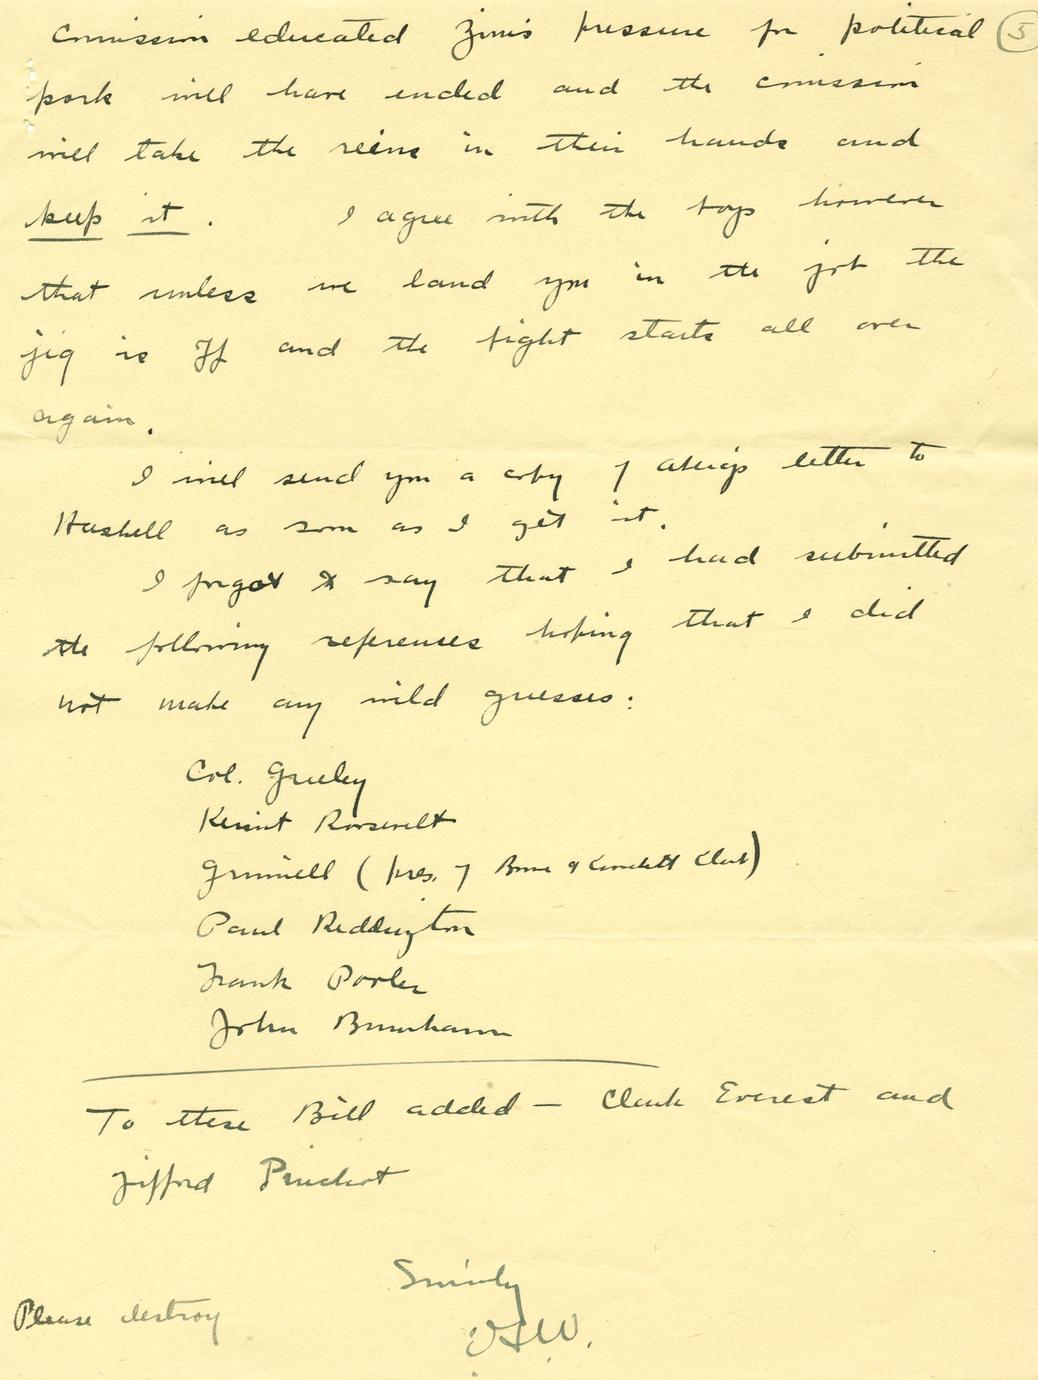 comission educated Zim's pressure for political 5
pork will have ended and the comission
will take the reins in their hands and
keep it. I agree with the boys however
that unless we land you in the job the
jig is off and the fight starts all over
again.
I will send you a copy of letter to
Haskell as soon as I get it.
I forgot to say that I had submitted
the following references hoping that I did
not make any wild guesses:
Col. Greeley
Kermit Roosevelt
Grinnell (pres. of Boone & Crockett Club)
Paul Reddington
Frank
John Burnham
To these Bill added — Clark Everest and
Gifford Pinchot
Sincerely
Please destroy